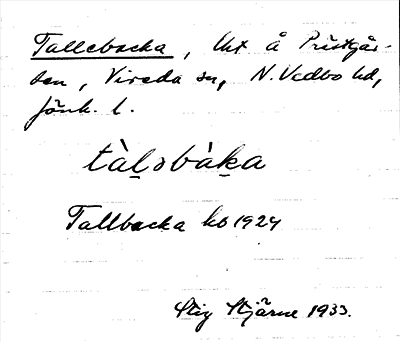 Tallebacka, lht å Prästgår-
den, Vireda sn, N. Vedbo hd,
Jönk. l.
tàl̠ɔbàk̠a
Tallbacka hb 1924
Stig Stjärne 1933.